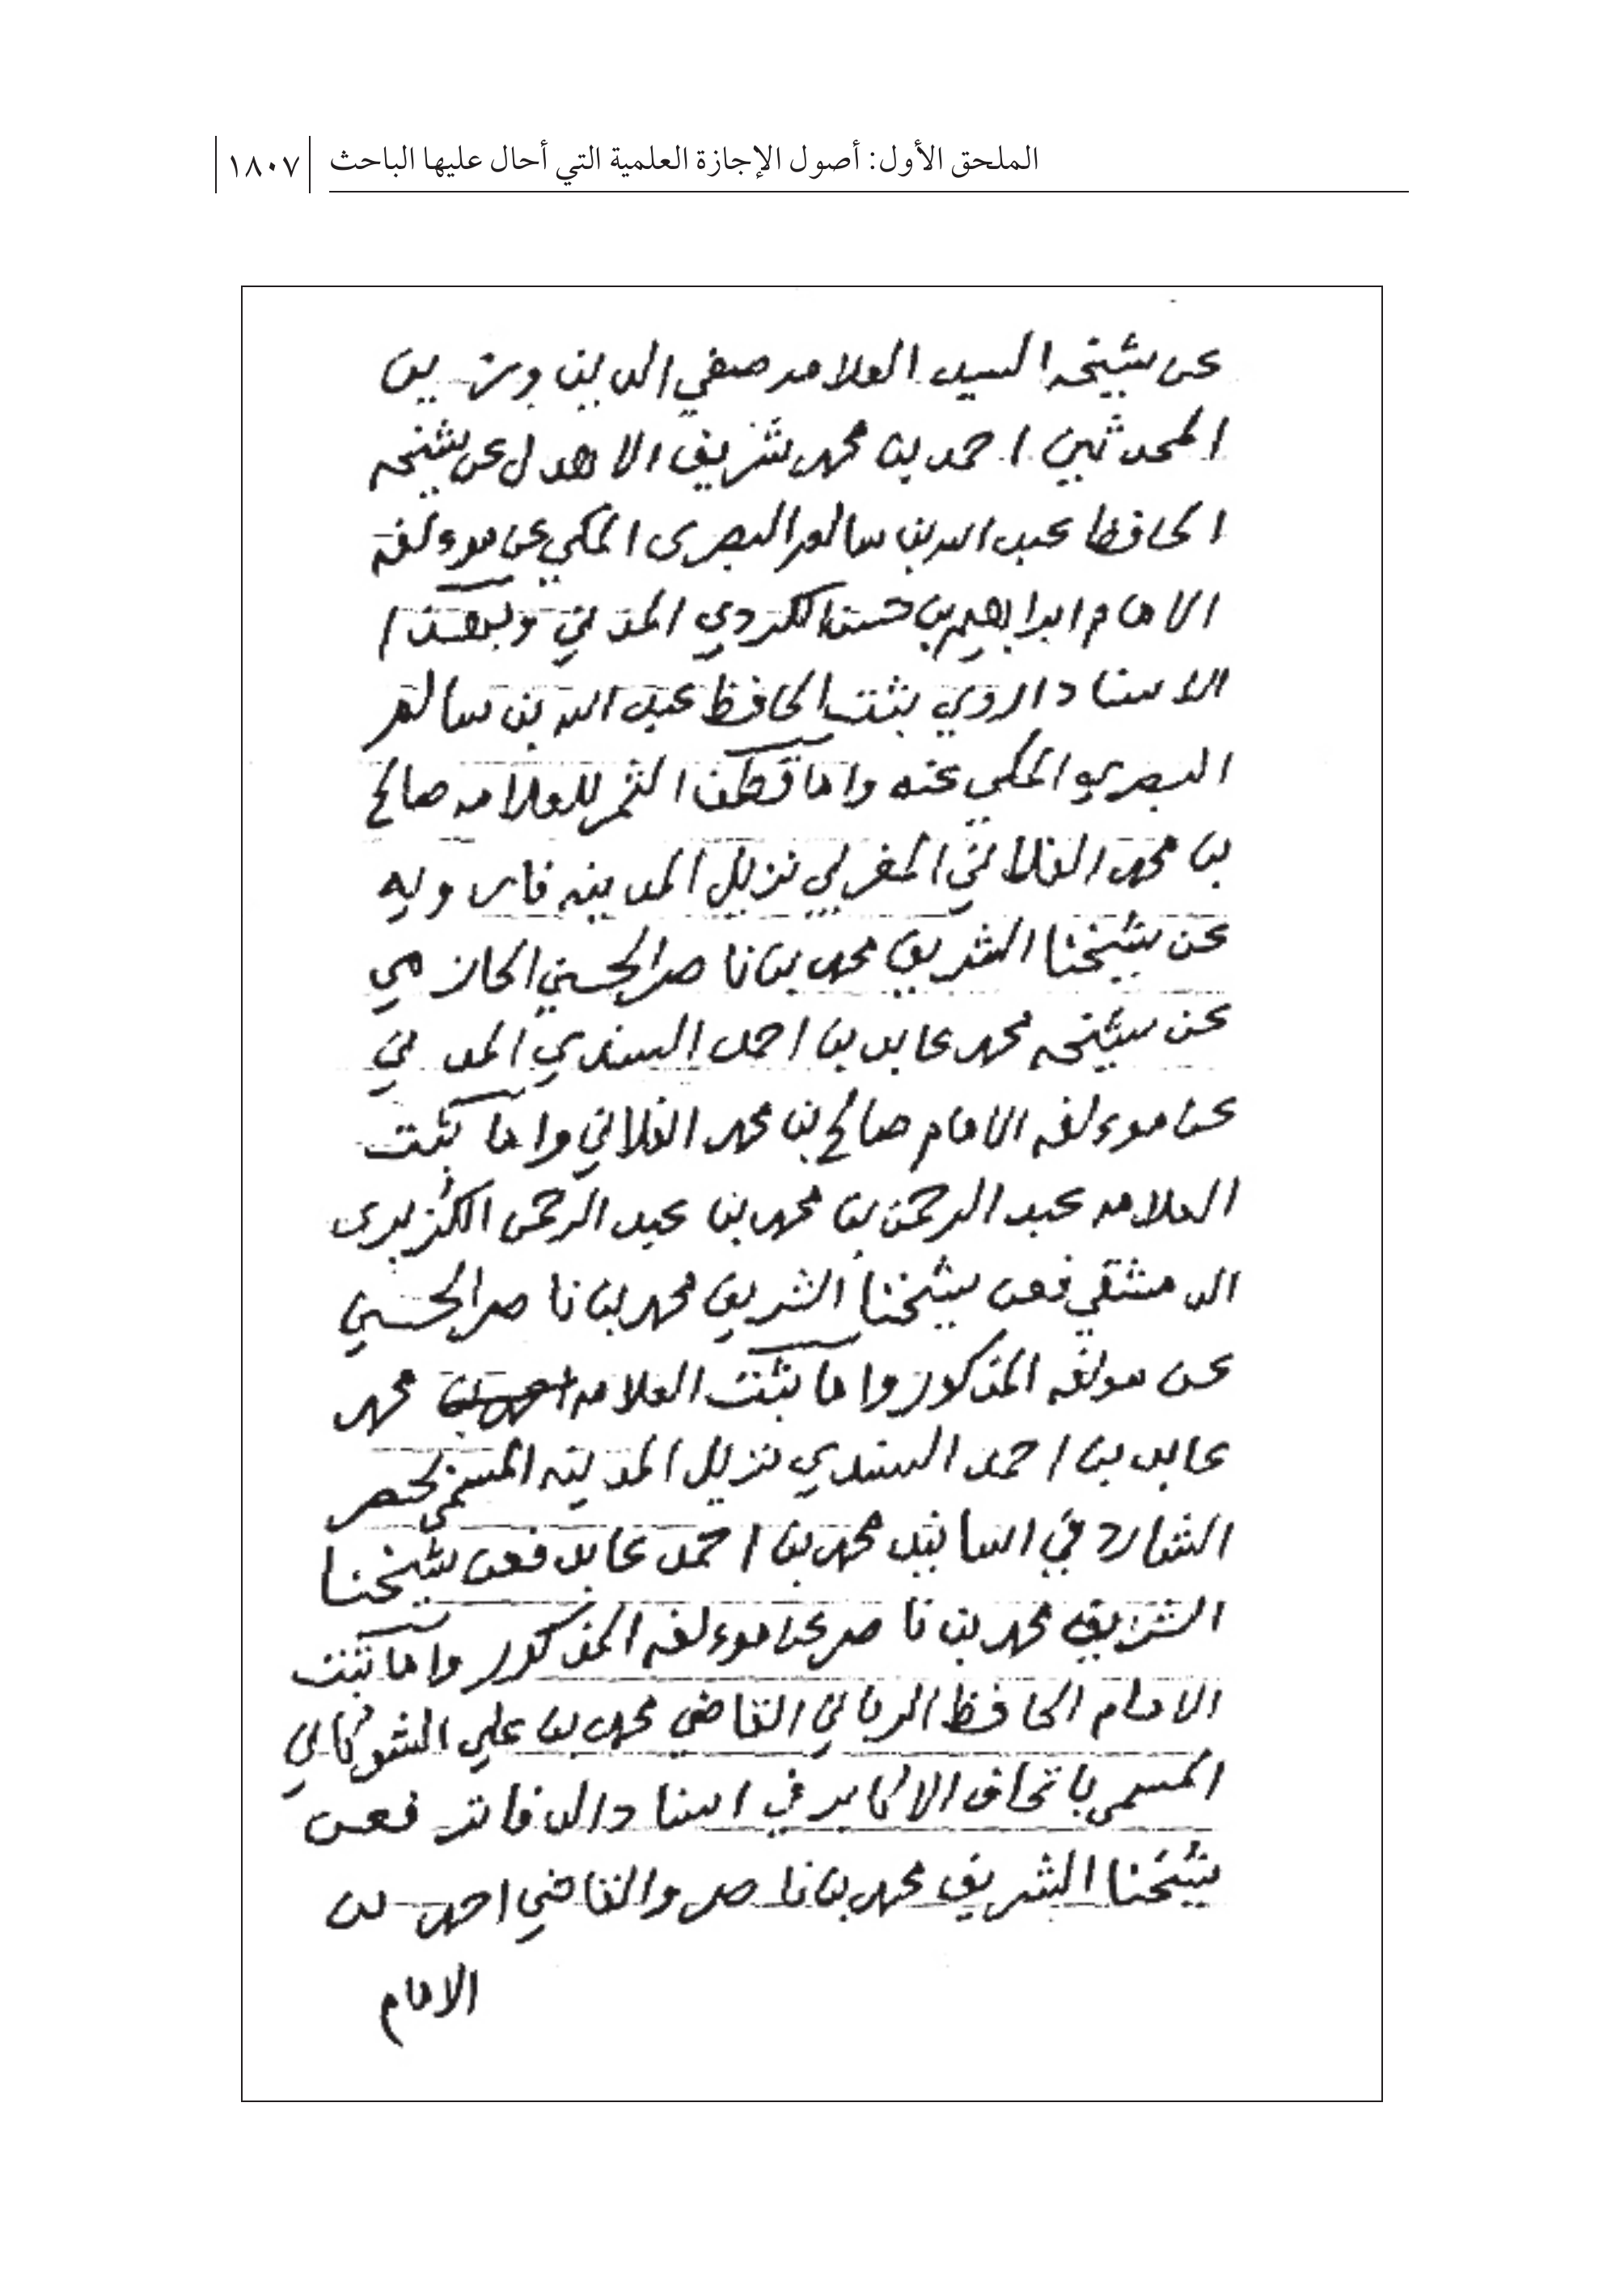 الملحق الأول: أصول الإجازة العلمية التي أحال عليها الباحث ١٨٠٧
عن شيخه السيد العلامه صفي الدين وزين
المحدثين احمد بن محمد شريف الاهدل عن شيخه
الحافظ عبد الله بن سالم البصرى المكي عن موءلفه
الامام ابراهيم بن حسن الكردي المدني وبهذا
الاسناد اروي بثت الحافظ عبد الله بن سالم
البصري المكي عنه واما قطف الثمر للعلامه صالح
بن محمد الفلاني المغربي نزيل المدينه فارويه
عن شيخنا الشريف محمد بن ناصر الحسني الحازمي
عن شيخه محمد عابد بن احمد السندي المدني
عن موءلفه الامام صالح بن محمد الفلاني واما ثبت
العلامه عبد الرحمن بن محمد بن عبد الرحمن الكزبرى
الدمشقي فعن شيخنا الشريف محمد بن ناصر الحسني
عن مولفه المذكور واما ثبت العلامه محمد
عابد بن احمد السندي نزيل المدينه المسمى بحصر
الشارد في اسانيد محمد بن احمد عابد فعن شيخنا
الشريف محمد بن ناصر عن موءلفه المذكور واما ثبت
الامام الحافظ الرباني القاضي محمد بن علي الشوكاني
المسمى باتحاف الاكابر في اسناد الدفاتر فعن
شيخنا الشريف محمد بن ناصر والقاضي احمد بن
الامام